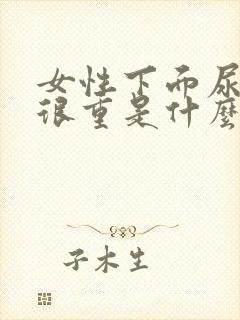 女性下而尿
很重是什麼
子木生